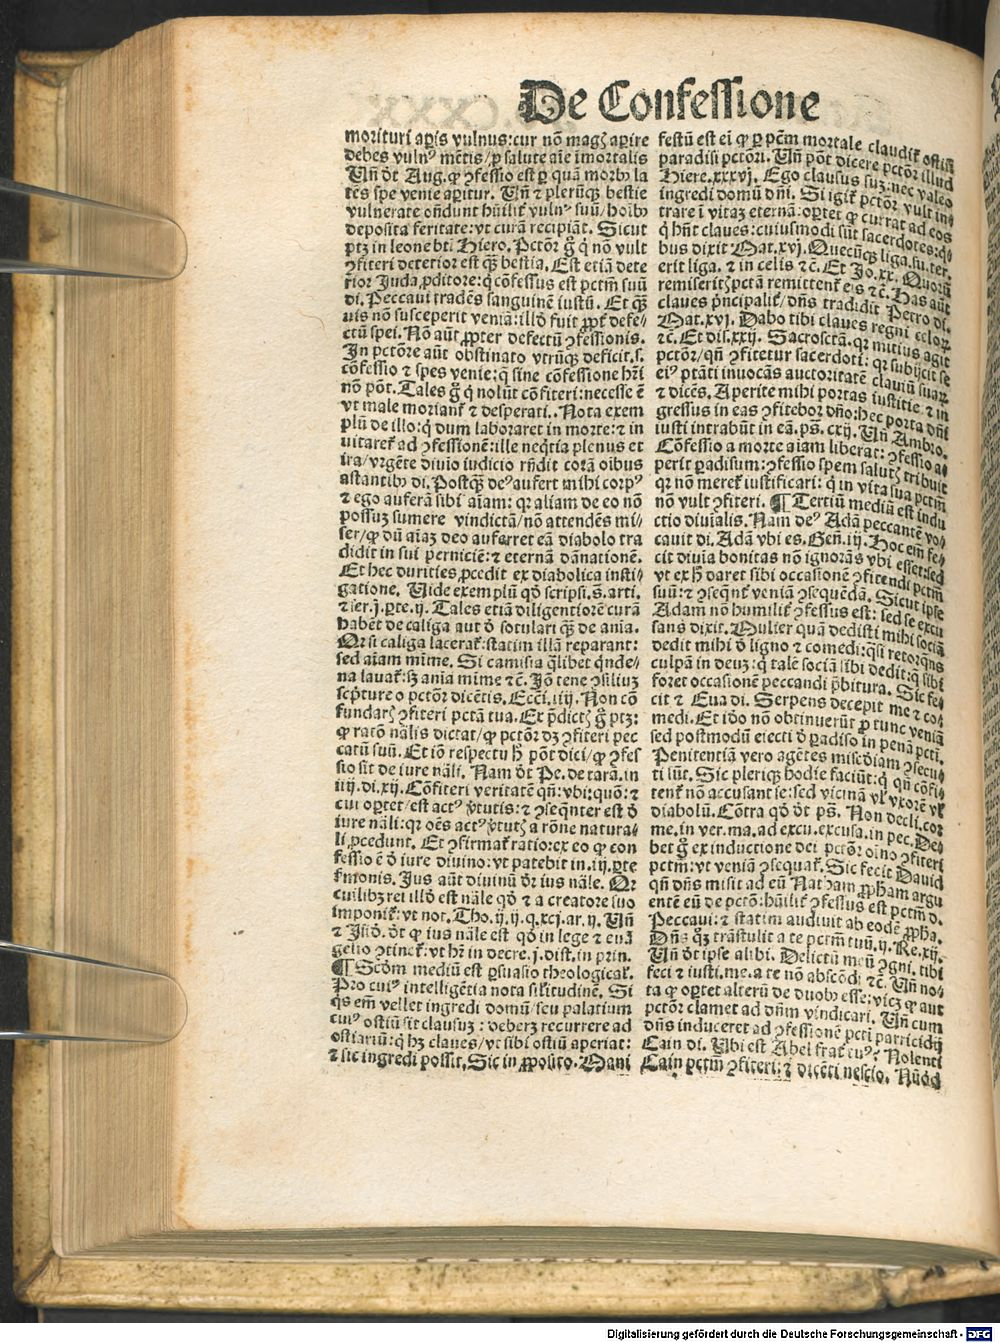 De Confessione
morituri aꝑis vulnus: cur nō magꝭ aꝑire
debes vulnꝰ mētis / ꝓ salute aīe īmortalis
Uñ ōt Aug. ꝙ ꝯfessio est ꝑ quā morbꝰ la
tēs spe venie aꝑitur. Uñ ⁊ plerūqꝫ bestie
vulnerate oñdunt hūilit̄ vulnꝰ suū / hoībꝰ
deposita feritate: vt curā recipiāt. Sicut
ptꝫ in leone bt̄i Hiero. Pctōr ḡ q̇ nō vult
ꝯfiteri deterior est qꝫ̄ bestia. Est etiā dete
rior Juda ꝓditore: q̇ cōfessus est pctm̄ suū
di. Peccavi tradēs sanguinē iustū. Et qꝫ̄
uis nō susceperit veniā: illḋ fuit ꝓpt̄ defe-
ctū spei. Nō aūt ꝓpter defectū ꝯfessionis.
In pctōre aūt obstinato vtrūqꝫ deficit. s.
cōfessio ⁊ spes venie: q̄ sine cōfessione hr̄i
nō pōt. Tales ḡ q̇ nolūt cōfiteri: necesse ē
vt male moriant̄ ⁊ desperati. Nota exem
plū de illo: q̇ dum laboraret in morte: ⁊ in
vitaret̄ ad ꝯfessionē: ille neq̇tia plenus et
ira / vrgēte diuio iudicio rñdit corā oībus
astantibꝰ di. Postqꝫ̄ deꝰ aufert mihi corpꝰ
⁊ ego auferā sibi aīam: qꝛ aliam de eo nō
possuꝫ sumere vindictā / nō attendēs mi-
ser / ꝙ dū aīaꝫ deo auferret eā diabolo tra
didit in sui perniciē: ⁊ eternā dānationē.
Et hec durities ꝓcedit ex diabolica insti-
gatione. Uide exemplū qḋ scripsi. s. arti.
⁊ ier. j. ꝑte. ij. Tales etiā diligentiorē curā
habēt de caliga aut ḋ sotulari qꝫ̄ de anīa.
Qꝛ si caliga lacerat̄: statim illā reparant:
sed aīam mīme. Si camisia q̄libet q̇nde-
na lauat̄: sꝫ anīa mīme ⁊c̄. Jō tene ꝯsiliuꝫ
scpture o pctōr dicētis. Ecci. iiij. Non cō
fundarꝭ ꝯfiteri pctā tua. Ex p̄dictꝭ ḡ ptꝫ:
ꝙ ratō nālis dictat / ꝙ pctōr dꝫ ꝯfiteri pec
catū suū. Et iō respectu hꝰ pōt dici / ꝙ ꝯfes
sio sit de iure nāli. Nam ōt Pe. de tarā. in
iiij. di. xij. Cōfiteri veritatē qñ: vbi: quō: ⁊
cui oꝑtet / est actꝰ v̇tutis: ⁊ ꝯseqn̄ter est ḋ
iure nāli: qꝛ oēs actꝰ v̇tutꝭ a rōne natura-
li ꝓcedunt. Et ꝯfirmat̄ ratio: ex eo ꝙ con
fessio ē ḋ iure diuino: vt patebit in. iij. ꝑte
s̄monis. Jus aūt diuinū ḋr ius nāle. Qꝛ
cuilibꝫ rei illḋ est nāle qḋ ⁊ a creatore suo
imponit̄: vt not. Tho. ij. ij. q. xcj. ar. ij. Uñ
⁊ Jsid. ōt ꝙ ius nāle est qḋ in lege ⁊ euā
gelio ꝯtinet̄: vt hr̄ in decre. j. dist. in prin.
¶ Scdm mediū est ꝑsuasio theological.
Pro cuiꝰ intelligētia nota silitudinē. Si
q̇s em̄ vellet ingredi domū / seu palatium
cuiꝰ ostiū sit clausuꝫ: deberꝫ recurrere ad
ostiariū: q̇ hꝫ claues / vt sibi ostiū aperiat:
⁊ sic ingredi possit. Sic in ꝓposito. Mani
festū est eī ꝙ ꝑ pctm̄ mortale claudit̄ ostiū
paradisi pctōri. Uñ pōt dicere pctōr illud
Hiere. xxxvj. Ego clausus suꝫ: nec valeo
ingredi domū dñi. Si igit̄ pctōr vult in-
trare ī vitaꝫ eternā: oꝑtet ꝙ currat ad eos
q̇ hñt claues: cuiusmodi sūt sacerdotes: q̇-
bus dixit Mat. xvj. Quecūqꝫ liga. su. ter.
erit liga. ⁊ in celis ⁊c̄. Et Jo. xx. Quorū
remiseritꝭ pctā remittent̄ eis ⁊c̄. Has aūt
claues p̄ncipalit̄ / dñs tradidit Petro di.
Mat. xvj. Dabo tibi claues regni celoꝝ
⁊c̄. Et dis. xxij. Sacrosctā. qꝛ mitius agit
pctōr / qñ ꝯfitetur sacerdoti: qꝛ subijcit se
eiꝰ ptāti inuocās auctoritatē clauiū suaꝝ
⁊ dicēs. Aperite mihi portas iustitie ⁊ in
gressus in eas ꝯfitebor dño: hec porta dñi
iusti intrabūt in eā. ps. cxij. Uñ Ambro.
Cōfessio a morte aīam liberat: ꝯfessio a-
perit ꝑadisum: ꝯfessio spem salutꝭ tribuit
qꝛ nō meret̄ iustificari: q̇ in vita sua pctm̄
nō vult ꝯfiteri. ¶ Tertiū mediū est indu
ctio diuīalis. Nam deꝰ Adā peccantē vo-
cauit di. Adā vbi es. Geñ. iij. Hoc em̄ fe-
cit diuīa bonitas nō ignorās vbi esset: sed
vt ex hꝰ daret sibi occasionē ꝯfitendi pctm̄
suū: ⁊ ꝯseqn̄t̄ veniā ꝯsequēdā. Sicut ipse
Adam nō humilit̄ ꝯfessus est: sed se excu
sans dixit. Mulier quā dedisti mihi sociā
dedit mihi ḋ ligno ⁊ comedi: q̇si retorq̄ns
culpā in deuꝫ: q̇ talē sociā sibi dedit: q̄ sibi
foret occasionē peccandi p̄bitura. Sic fe-
cit ⁊ Eua di. Serpens decepit me ⁊ co-
medi. Et idō nō obtinuerūt ꝓ tunc veniā
sed postmodū eiecti ḋ ꝑadiso in penā pcti.
Penitentiā vero agētes misc̄diam ꝯsecu-
ti sūt. Sic pleriqꝫ hodie faciūt: q̇ qñ cōfi-
tent̄ nō accusant se: sed vicinā vl̄ vxorē vl̄
diabolū. Cōtra qḋ ōt ps. Non decli. cor
me. in ver. ma. ad excu. excusa. in pec. De-
bet ḡ ex inductione dei pctōr oīno ꝯfiteri
pctm̄: vt veniā ꝯsequat̄. Sic fecit Dauid
qñ dñs misit ad eū Natham ꝓpham argu
entē eū de pctō: hūilit̄ ꝯfessus est pctm̄ d.
Peccaui: ⁊ statim audiuit ab eodē ꝓpha.
Dñs qꝫ trāstulit a te pctm̄ tuū. ij. Re. xij.
Uñ ōt ipse alibi. Delictū meū ꝯgni. tibi
feci ⁊ iusti. me. a te nō abscōdi ⁊c̄. Uñ no-
ta ꝙ oꝑtet alterū de duobꝰ esse: vicꝫ ꝙ aut
pctōr clamet ad dñm vindicari. Uñ cum
dñs induceret ad ꝯfessionē pcti parricidij
Cain di. Ubi est Abel frat̄ tuꝰ? Nolenti
Cain pctm̄ ꝯfiteri: ⁊ dicēti nescio. Nūqd
Digitalisierung gefördert durch die Deutsche Forschungsgemeinschaft - DFG